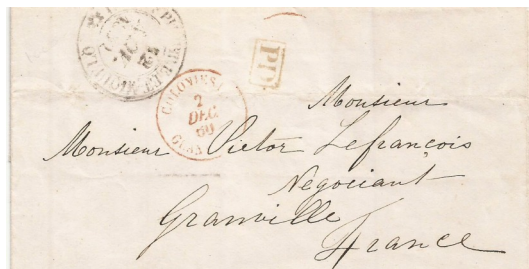 PD
COLONIES
2
DEC
60
Monsieur
Monsieur Victor Lefrançois
Negociant
Granville
France